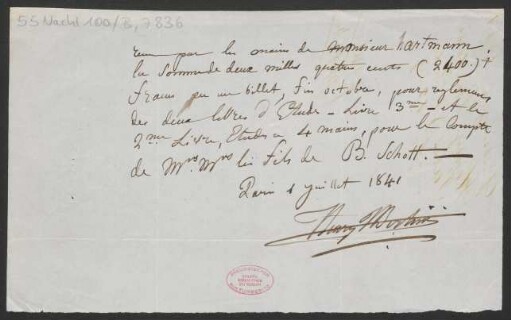 55 Nachl 100/B, 7836
recu par les mains de Monsieur hartmann
la Somme de deux milles quatre cents (2400)
francs en un billet, fin octobre, pour reglement
des deux lettres d'Etudes - Livre 3me - et le
2me Livre, Etudes a 4 mains, pour le Compte
de Mrs Mrs les fils de B. Schott.
Paris 1 juillet 1841
Henry